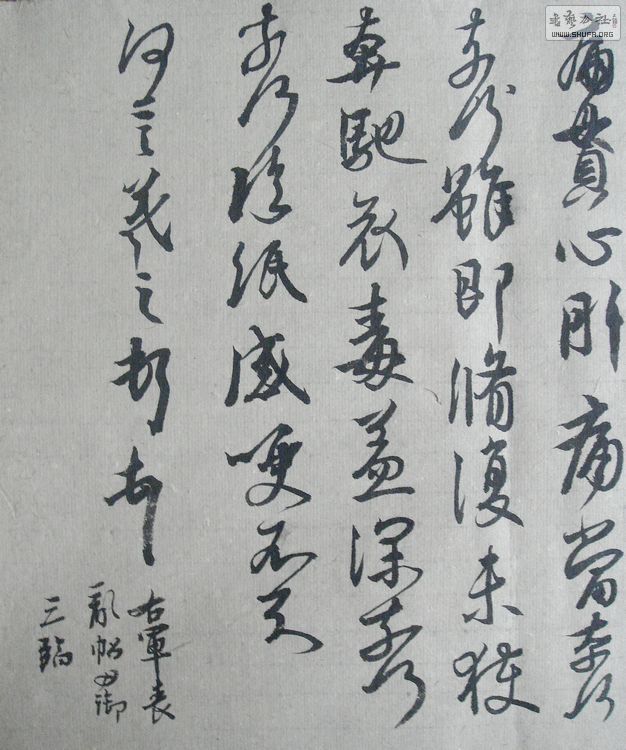 痛貫心肝痛當奈何
奈何雖即脩復未獲
奔馳哀毒益深奈何
奈何臨紙感哽不知
何言羲之頓首
右軍喪
亂帖
三稿
书艺公社
WWW.SHUFA.ORG